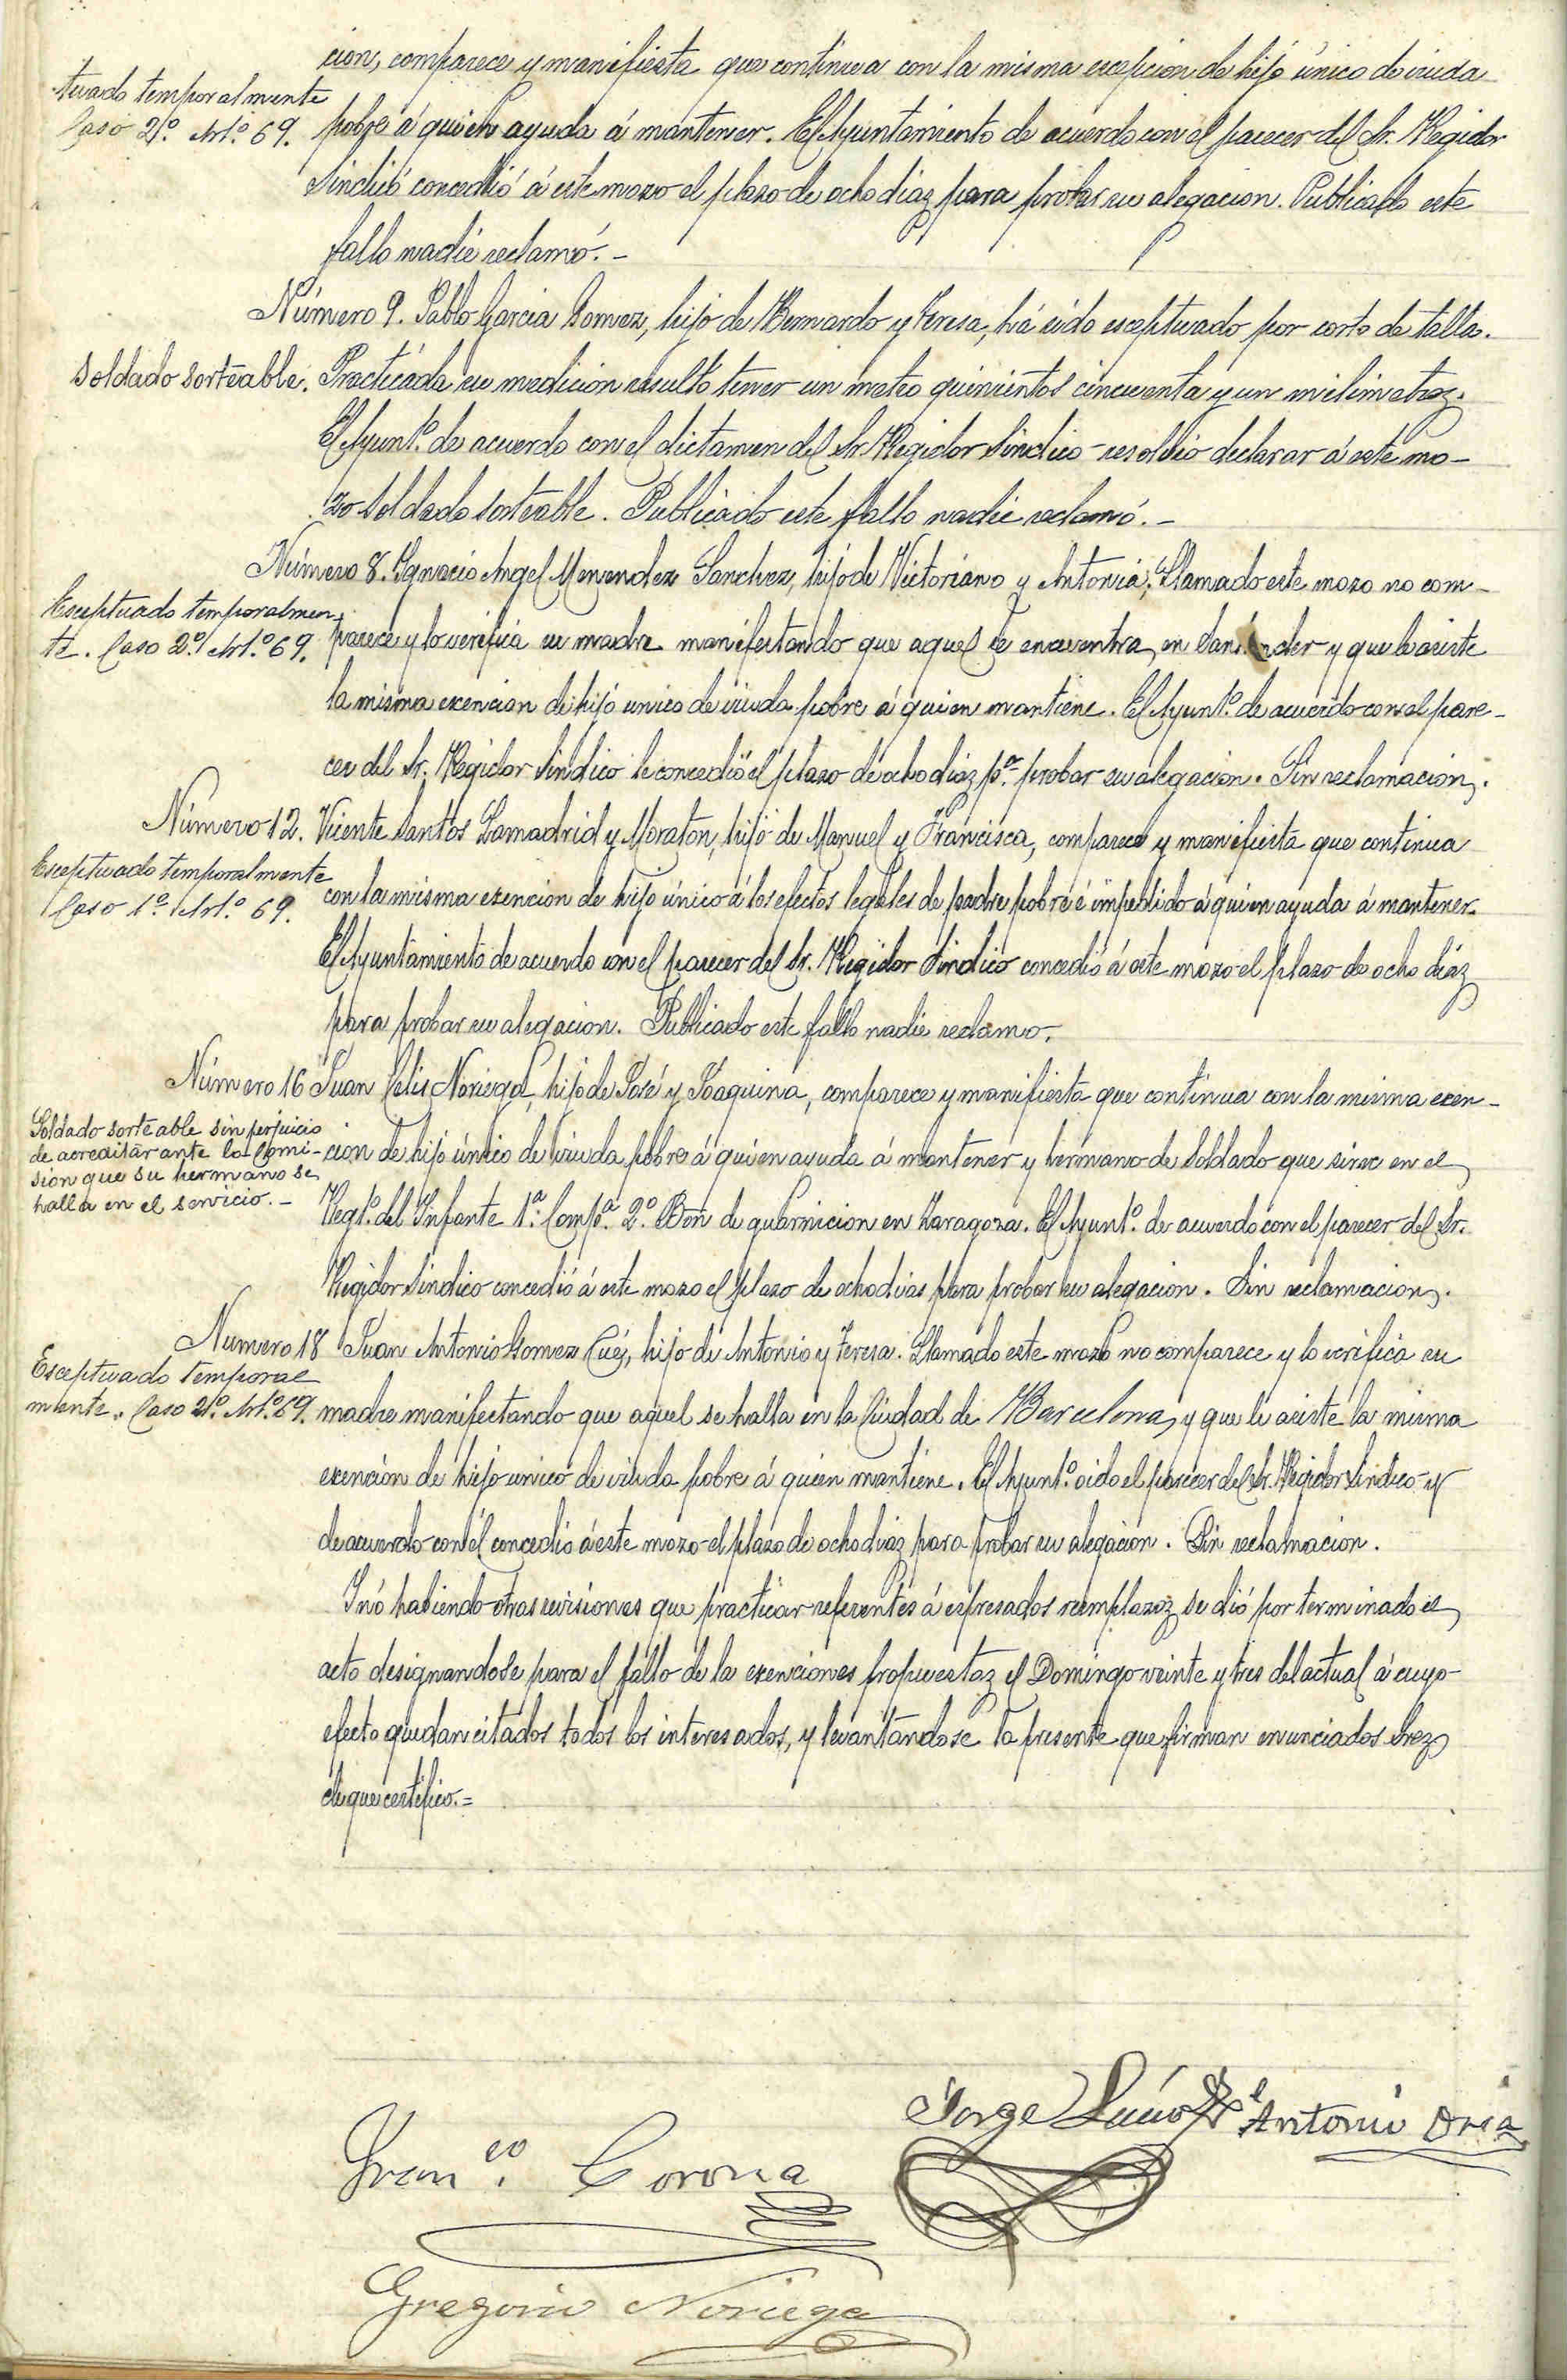 cion, comparece y manifiesta que continua con la misma escepcion de hijo único de viuda
tuado temporalmente
Caso 2º. Art.º 69.
pobre á quien ayuda á mantener. El Ayuntamiento de acuerdo con el parecer del Sr. Regidor
Sindico concedió á este mozo el plazo de ocho diaz para probar su alegacion. Publicado este
fallo nadie reclamó. -
Número 9. Pablo Garcia Gomez, hijo de Bernardo y Teresa, há sido esceptuado por corto de talla.
Soldado sorteable.
Practicada su medicion resultó tener un metro quinientos cincuenta y un milimetroz.
El Ayunt.º de acuerdo con el dictamen del Sr. Regidor Sindico resolvio declarar á este mo-
zo Soldado sorteable. Publicado este fallo nadie reclamó. -
Número 8. Ygnacio Angel Menendez Sanchez, hijo de Victoriano y Antonia; Llamado este mozo no com-
Esceptuado temporalmen
te. Caso 2º. Art.º 69.
parece y lo verifica su madre manifestando que aquel se encuentra en Santander y que le asiste
la misma exencion de hijo unico de viuda pobre á quien mantiene. El Ayunt.º de acuerdo con el pare-
cer del Sr. Regidor Sindico le concedió el plazo de ocho diaz p.ª probar su alegacion. Sin reclamacion.
Número 12. Vicente Santos Lamadrid y Moraton, hijo de Manuel y Francisca, comparece y manifiesta que continua
Esceptuado temporalmente
Caso 1º. Art.º 69.
con la misma exencion de hijo único á los efectos legales de padre pobre é impedido á quien ayuda á mantener.
El Ayuntamiento de acuerdo con el parecer del Sr. Regidor Sindico concedió á este mozo el plazo de ocho diaz
para probar su alegacion. Publicado este fallo nadie reclamo.
Número 16 Juan Celis Noriega, hijo de José y Joaquina, comparece y manifiesta que continua con la misma exen-
Soldado sorteable sin perjuicio
de acreditar ante la Comi-
sion que su hermano se
halla en el servicio. -
cion de hijo único de viuda pobre á quien ayuda á mantener y hermano de Soldado que sirve en el
Regt.º del Infante 1.ª Comp.ª 2.º Bon de guarnicion en Zaragoza. El Ayunt.º de acuerdo con el parecer del Sr.
Regidor Sindico concedió á este mozo el plazo de ocho dias para probar su alegacion. Sin reclamacion.
Numero 18 Juan Antonio Gomez Cué, hijo de Antonio y Teresa. Llamado este mozo no comparece y lo verifica su
Esceptuado temporal
mente. Caso 2º. Art.º 69.
madre manifestando que aquel se halla en la Ciudad de Barcelona, y que le asiste la misma
exencion de hijo unico de viuda pobre á quien mantiene. El Ayunt.º oido el parecer del Sr. Regidor Sindico y
de acuerdo con él concedió á este mozo el plazo de ocho diaz para probar su alegacion. Sin reclamacion.
Y nó habiendo otras revisiones que practicar referentes á espresados reemplazoz se dió por terminado el
acto designandose para el fallo de la exenciones propuestaz el Domingo veinte y tres del actual á cuyo
efecto quedan citados todos los interesados, y levantandose la presente que firman enunciados Srez
de que certifico. =
Jorge
Antonio Oria
Fran.co Corona
Gregorio Noriega